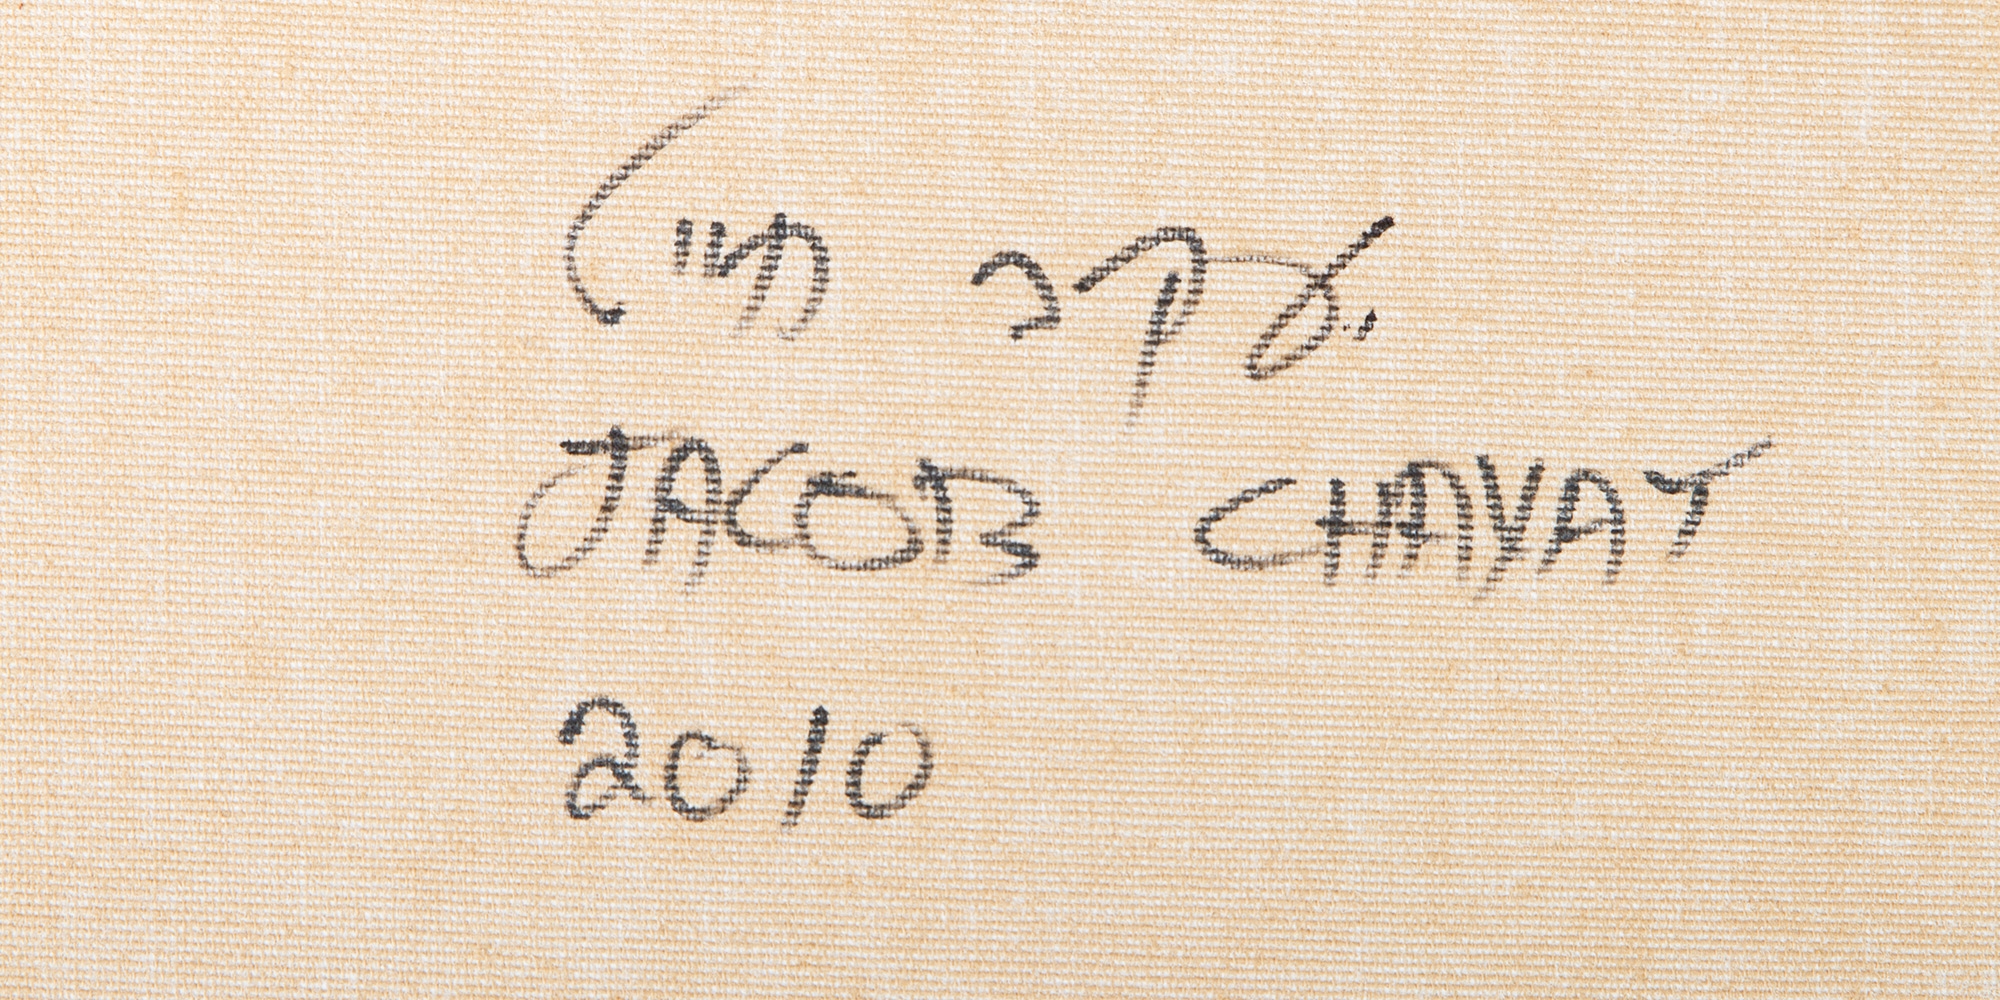 יעקב חייט
JACOB CHAYAT
2010